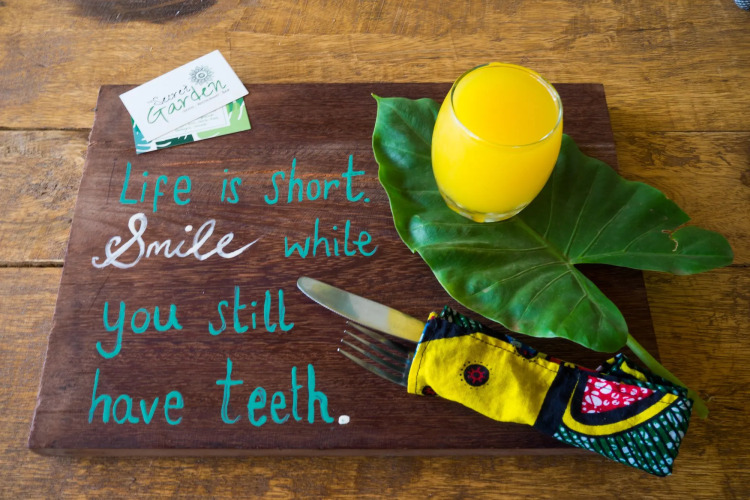 Secret
Garden
Life is short.
Smile while
you still
have teeth.